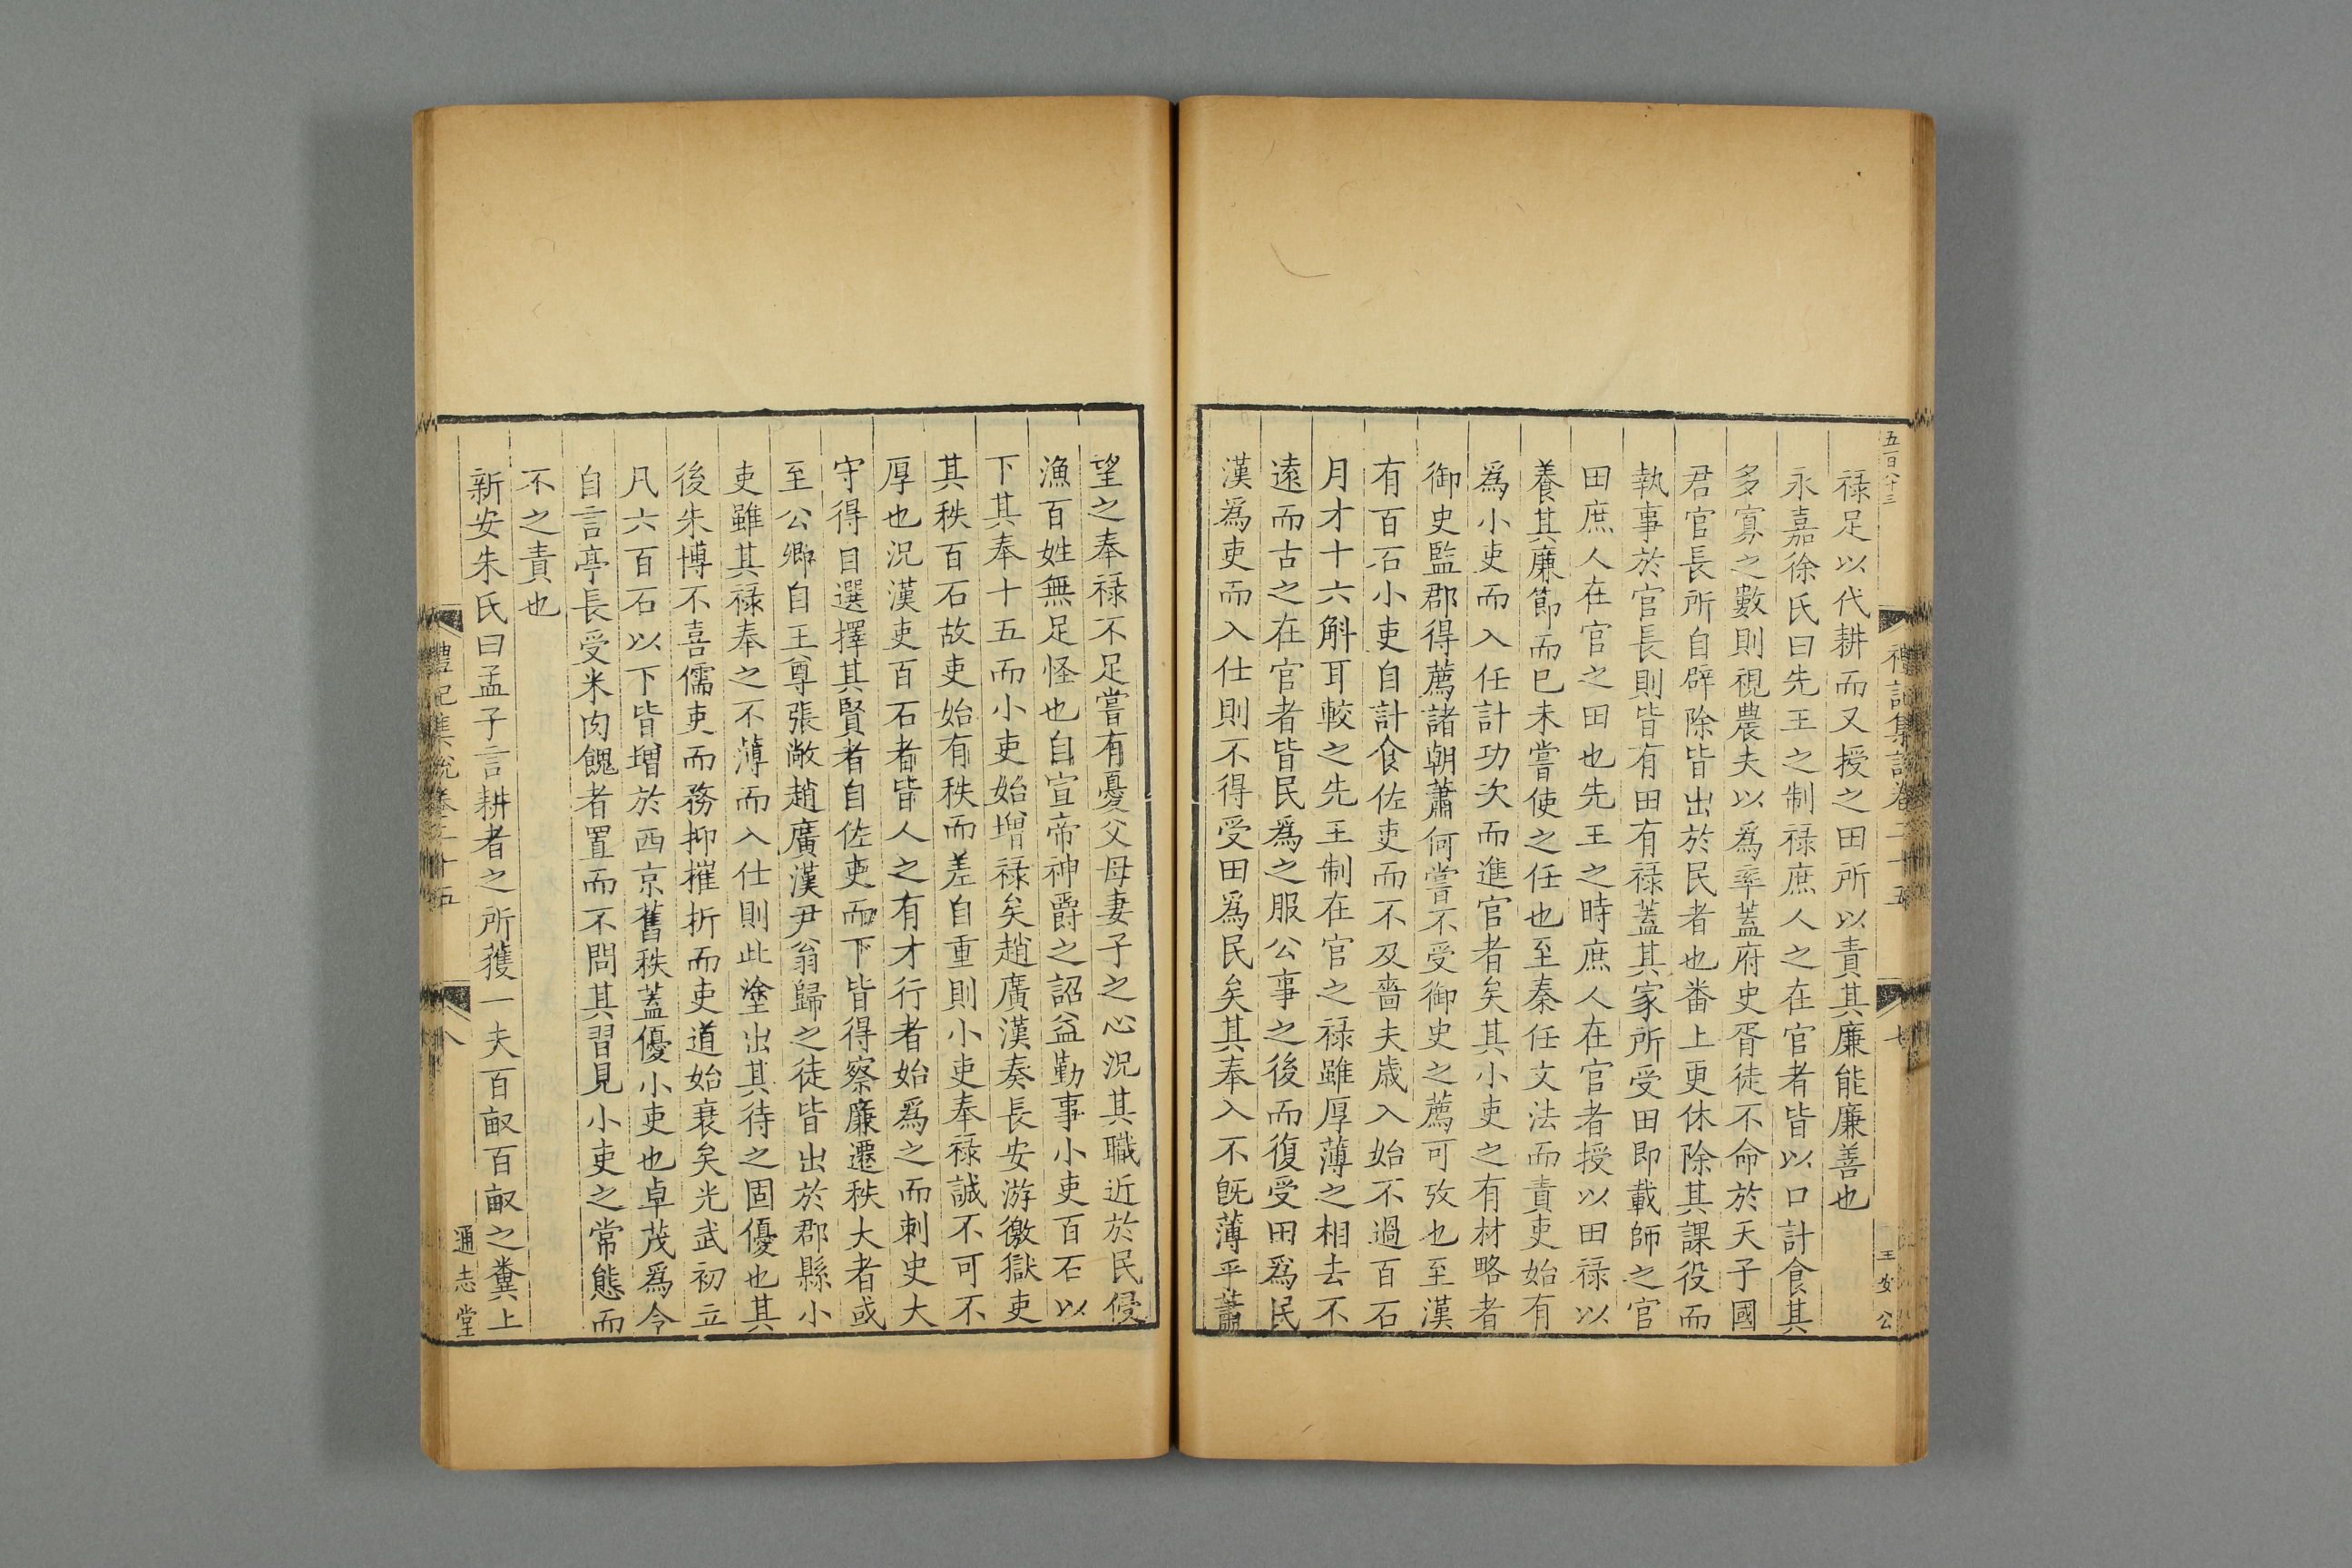 五百八十三
禮記集說卷二十五
七
王女公
祿足以代耕而又授之田所以責其廉能廉善也
永嘉徐氏曰先王之制祿庶人之在官者皆以口計食其
多寡之數則視農夫以爲率蓋府史胥徒不命於天子國
君官長所自辟除皆出於民者也番上更休除其課役而
執事於官長則皆有田有祿蓋其家所受田即載師之官
田庶人在官之田也先王之時庶人在官者授以田祿以
養其廉節而巳未嘗使之任也至秦任文法而責吏始有
爲小吏而入任計功次而進官者矣其小吏之有材略者
御史監郡得薦諸朝蕭何嘗不受御史之薦可攷也至漢
有百石小吏自計食佐吏而不及嗇夫歲入始不過百石
月才十六斛耳較之先王制在官之祿雖厚薄之相去不
遠而古之在官者皆民爲之服公事之後而復受田爲民
漢爲吏而入仕則不得受田爲民矣其奉入不旣薄乎蕭
望之奉祿不足嘗有憂父母妻子之心況其職近於民侵
漁百姓無足怪也自宣帝神爵之詔益勤事小吏百石以
下其奉十五而小吏始增祿矣趙廣漢奏長安游徼獄吏
其秩百石故吏始有秩而差自重則小吏奉祿誠不可不
厚也況漢吏百石者皆人之有才行者始爲之而刺史大
守得目選擇其賢者自佐吏而下皆得察廉遷秩大者或
至公卿自王尊張敞趙廣漢尹翁歸之徒皆出於郡縣小
吏雖其祿奉之不薄而入仕則此塗出其待之固優也其
後朱博不喜儒吏而務抑摧折而吏道始衰矣光武初立
凡六百石以下皆增於西京舊秩蓋優小吏也卓茂爲令
自言亭長受米肉餽者置而不問其習見小吏之常態而
不之責也
新安朱氏曰孟子言耕者之所獲一夫百畝百畝之糞上
禮記集說卷二十五
八
通志堂